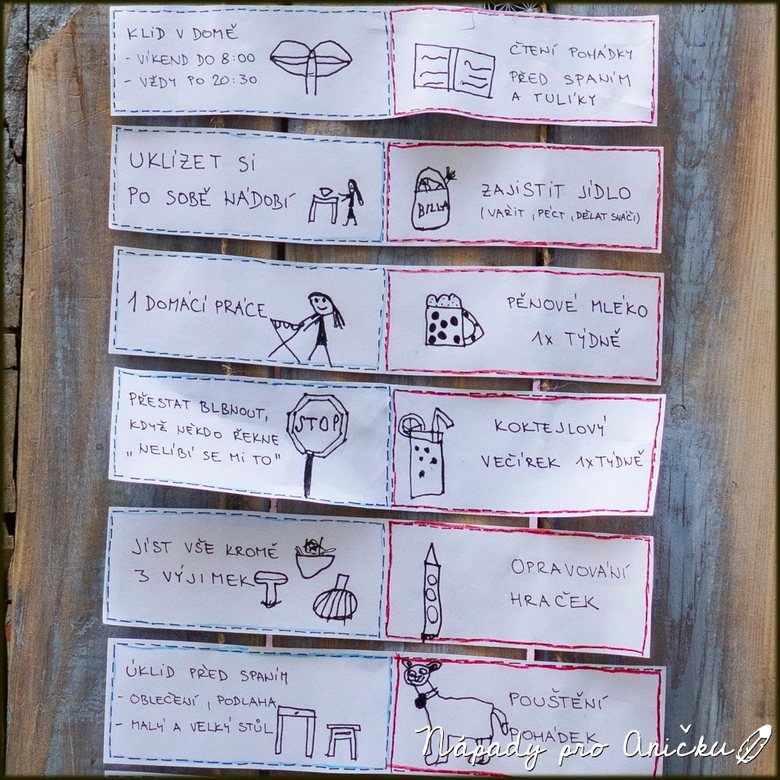 KLID V DOMĚ
- VÍKEND DO 8:00
- VŽDY PO 20:30
ČTENÍ POHÁDKY
PŘED SPANÍM
A TULÍKY
UKLÍZET SI
PO SOBĚ NÁDOBÍ
BILLA
ZAJISTIT JÍDLO
(VAŘIT, PÉCT, DĚLAT SVAČI)
1 DOMÁCÍ PRÁCE
PĚNOVÉ MLÉKO
1x TÝDNĚ
PŘESTAT BLBNOUT,
KDYŽ NĚKDO ŘEKNE
„NELÍBÍ SE MI TO"
STOP
KOKTEJLOVÝ
VEČÍREK 1x TÝDNĚ
JÍST VŠE KROMĚ
3 VÝJIMEK
OPRAVOVÁNÍ
HRAČEK
ÚKLID PŘED SPANÍM
- OBLEČENÍ, PODLAHA
- MALÝ A VELKÝ STŮL
POUŠTĚNÍ
POHÁDEK
Nápady pro Aničku